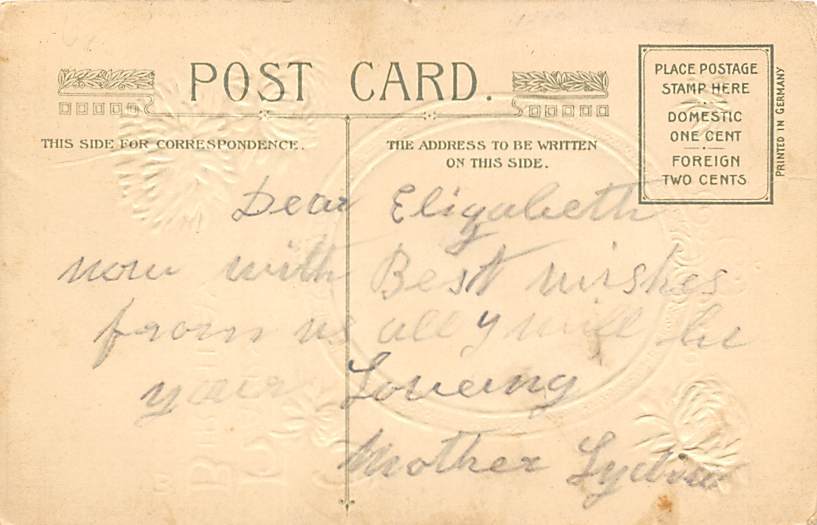 POST CARD.
THIS SIDE FOR CORRESPONDENCE.
THE ADDRESS TO BE WRITTEN
ON THIS SIDE.
PLACE POSTAGE
STAMP HERE
DOMESTIC
ONE CENT
FOREIGN
TWO CENTS
PRINTED IN GERMANY
Dear Elizabeth
now with Best wishes
from us all y will be
your Loveing
Mother Lydia